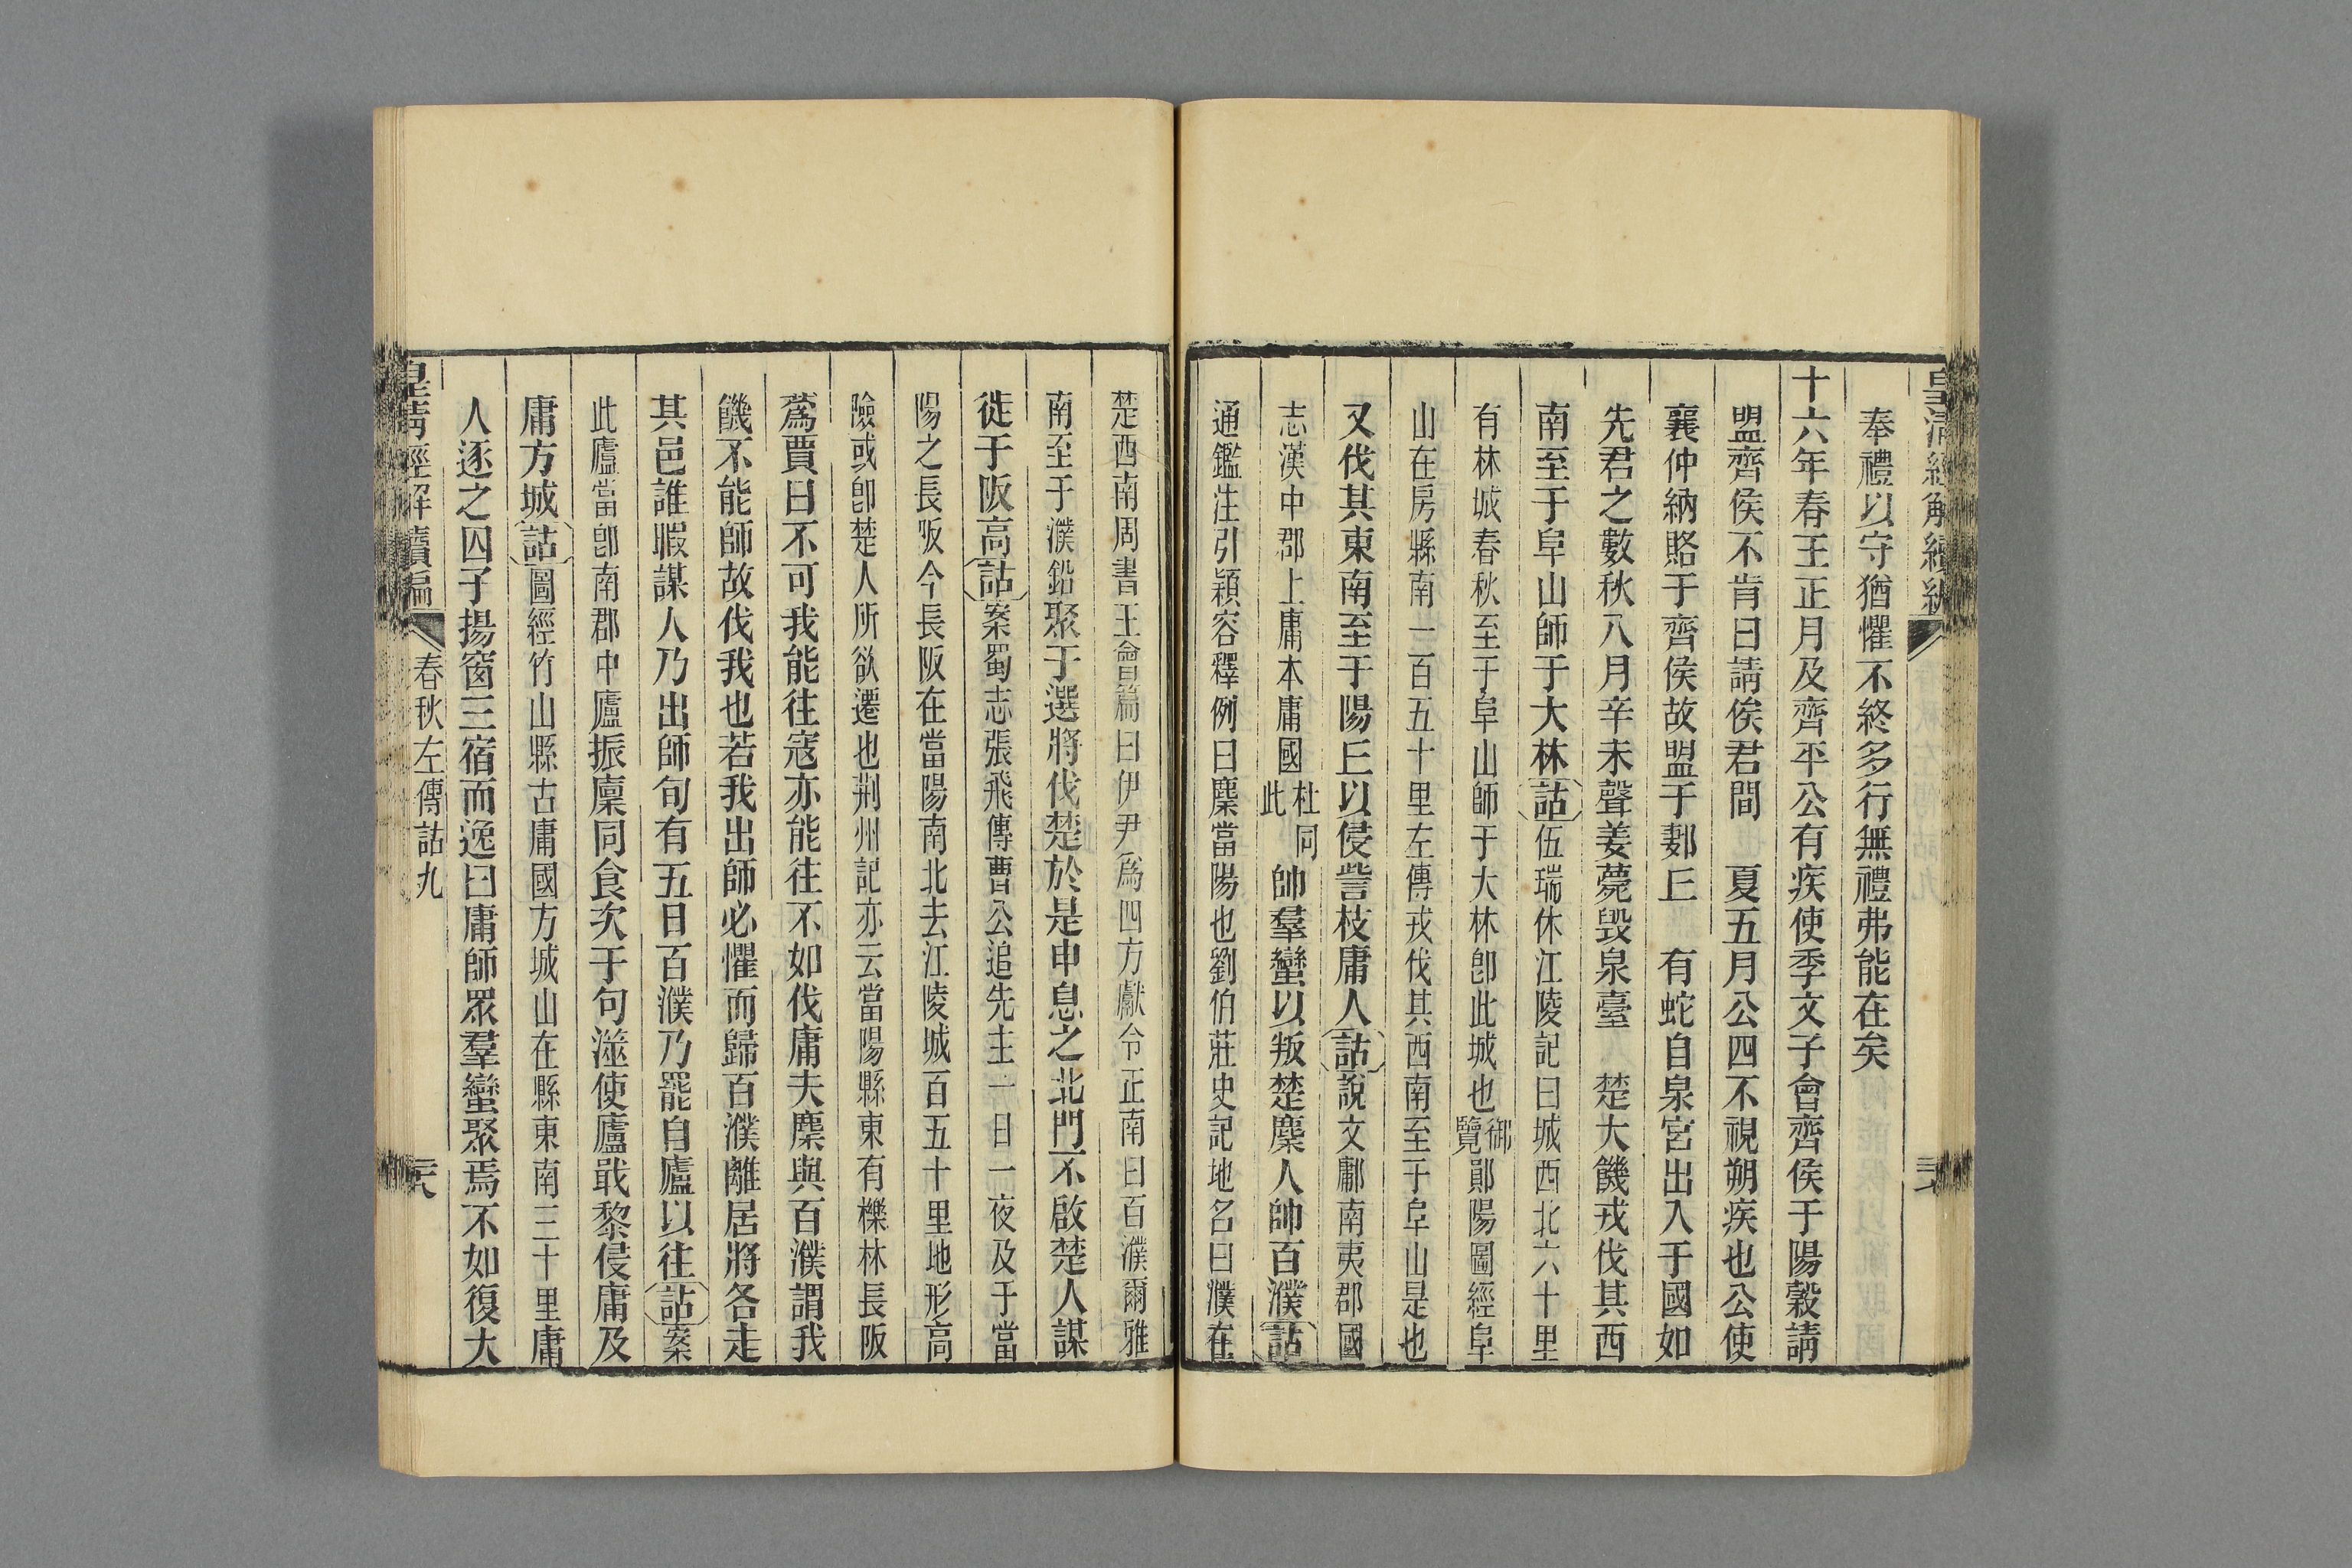 皇清經解續編
奉禮以守猶懼不終多行無禮弗能在矣
十六年春王正月及齊平公有疾使季文子會齊侯于陽穀請
盟齊侯不肯曰請俟君間　夏五月公四不視朔疾也公使
襄仲納賂于齊侯故盟于郪㐀　有蛇自泉宮出入于國如
先君之數秋八月辛未聲姜薨毀泉臺　楚大饑戎伐其西
南至于阜山師于大林詁伍瑞休江陵記曰城西北六十里
有林城春秋至于阜山師于大林卽此城也御覽鄖陽圖經阜
山在房縣南一百五十里左傳戎伐其西南至于阜山是也
又伐其東南至于陽㐀以侵訾枝庸人詁說文鄘南夷郡國
志漢中郡上庸本庸國杜同此帥羣蠻以叛楚麇人帥百濮詁
通鑑注引穎容釋例曰麇當陽也劉伯莊史記地名曰濮在
楚西南周書王會篇曰伊尹爲四方獻令正南曰百濮爾雅
南至于濮鉛聚于選將伐楚於是申息之北門不啟楚人謀
徙于阪高詁案蜀志張飛傳曹公追先主一日一夜及于當
陽之長阪今長阪在當陽南北去江陵城百五十里地形高
險或卽楚人所欲遷也荆州記亦云當陽縣東有櫟林長阪
蒍賈曰不可我能往寇亦能往不如伐庸夫麇與百濮謂我
饑不能師故伐我也若我出師必懼而歸百濮離居將各走
其邑誰暇謀人乃出師旬有五日百濮乃罷自廬以往詁案
此廬當卽南郡中廬振廩同食次于句澨使廬戢黎侵庸及
庸方城詁圖經竹山縣古庸國方城山在縣東南三十里庸
人逐之囚子揚窗三宿而逸曰庸師眾羣蠻聚焉不如復大
皇清經解續編　春秋左傳詁九